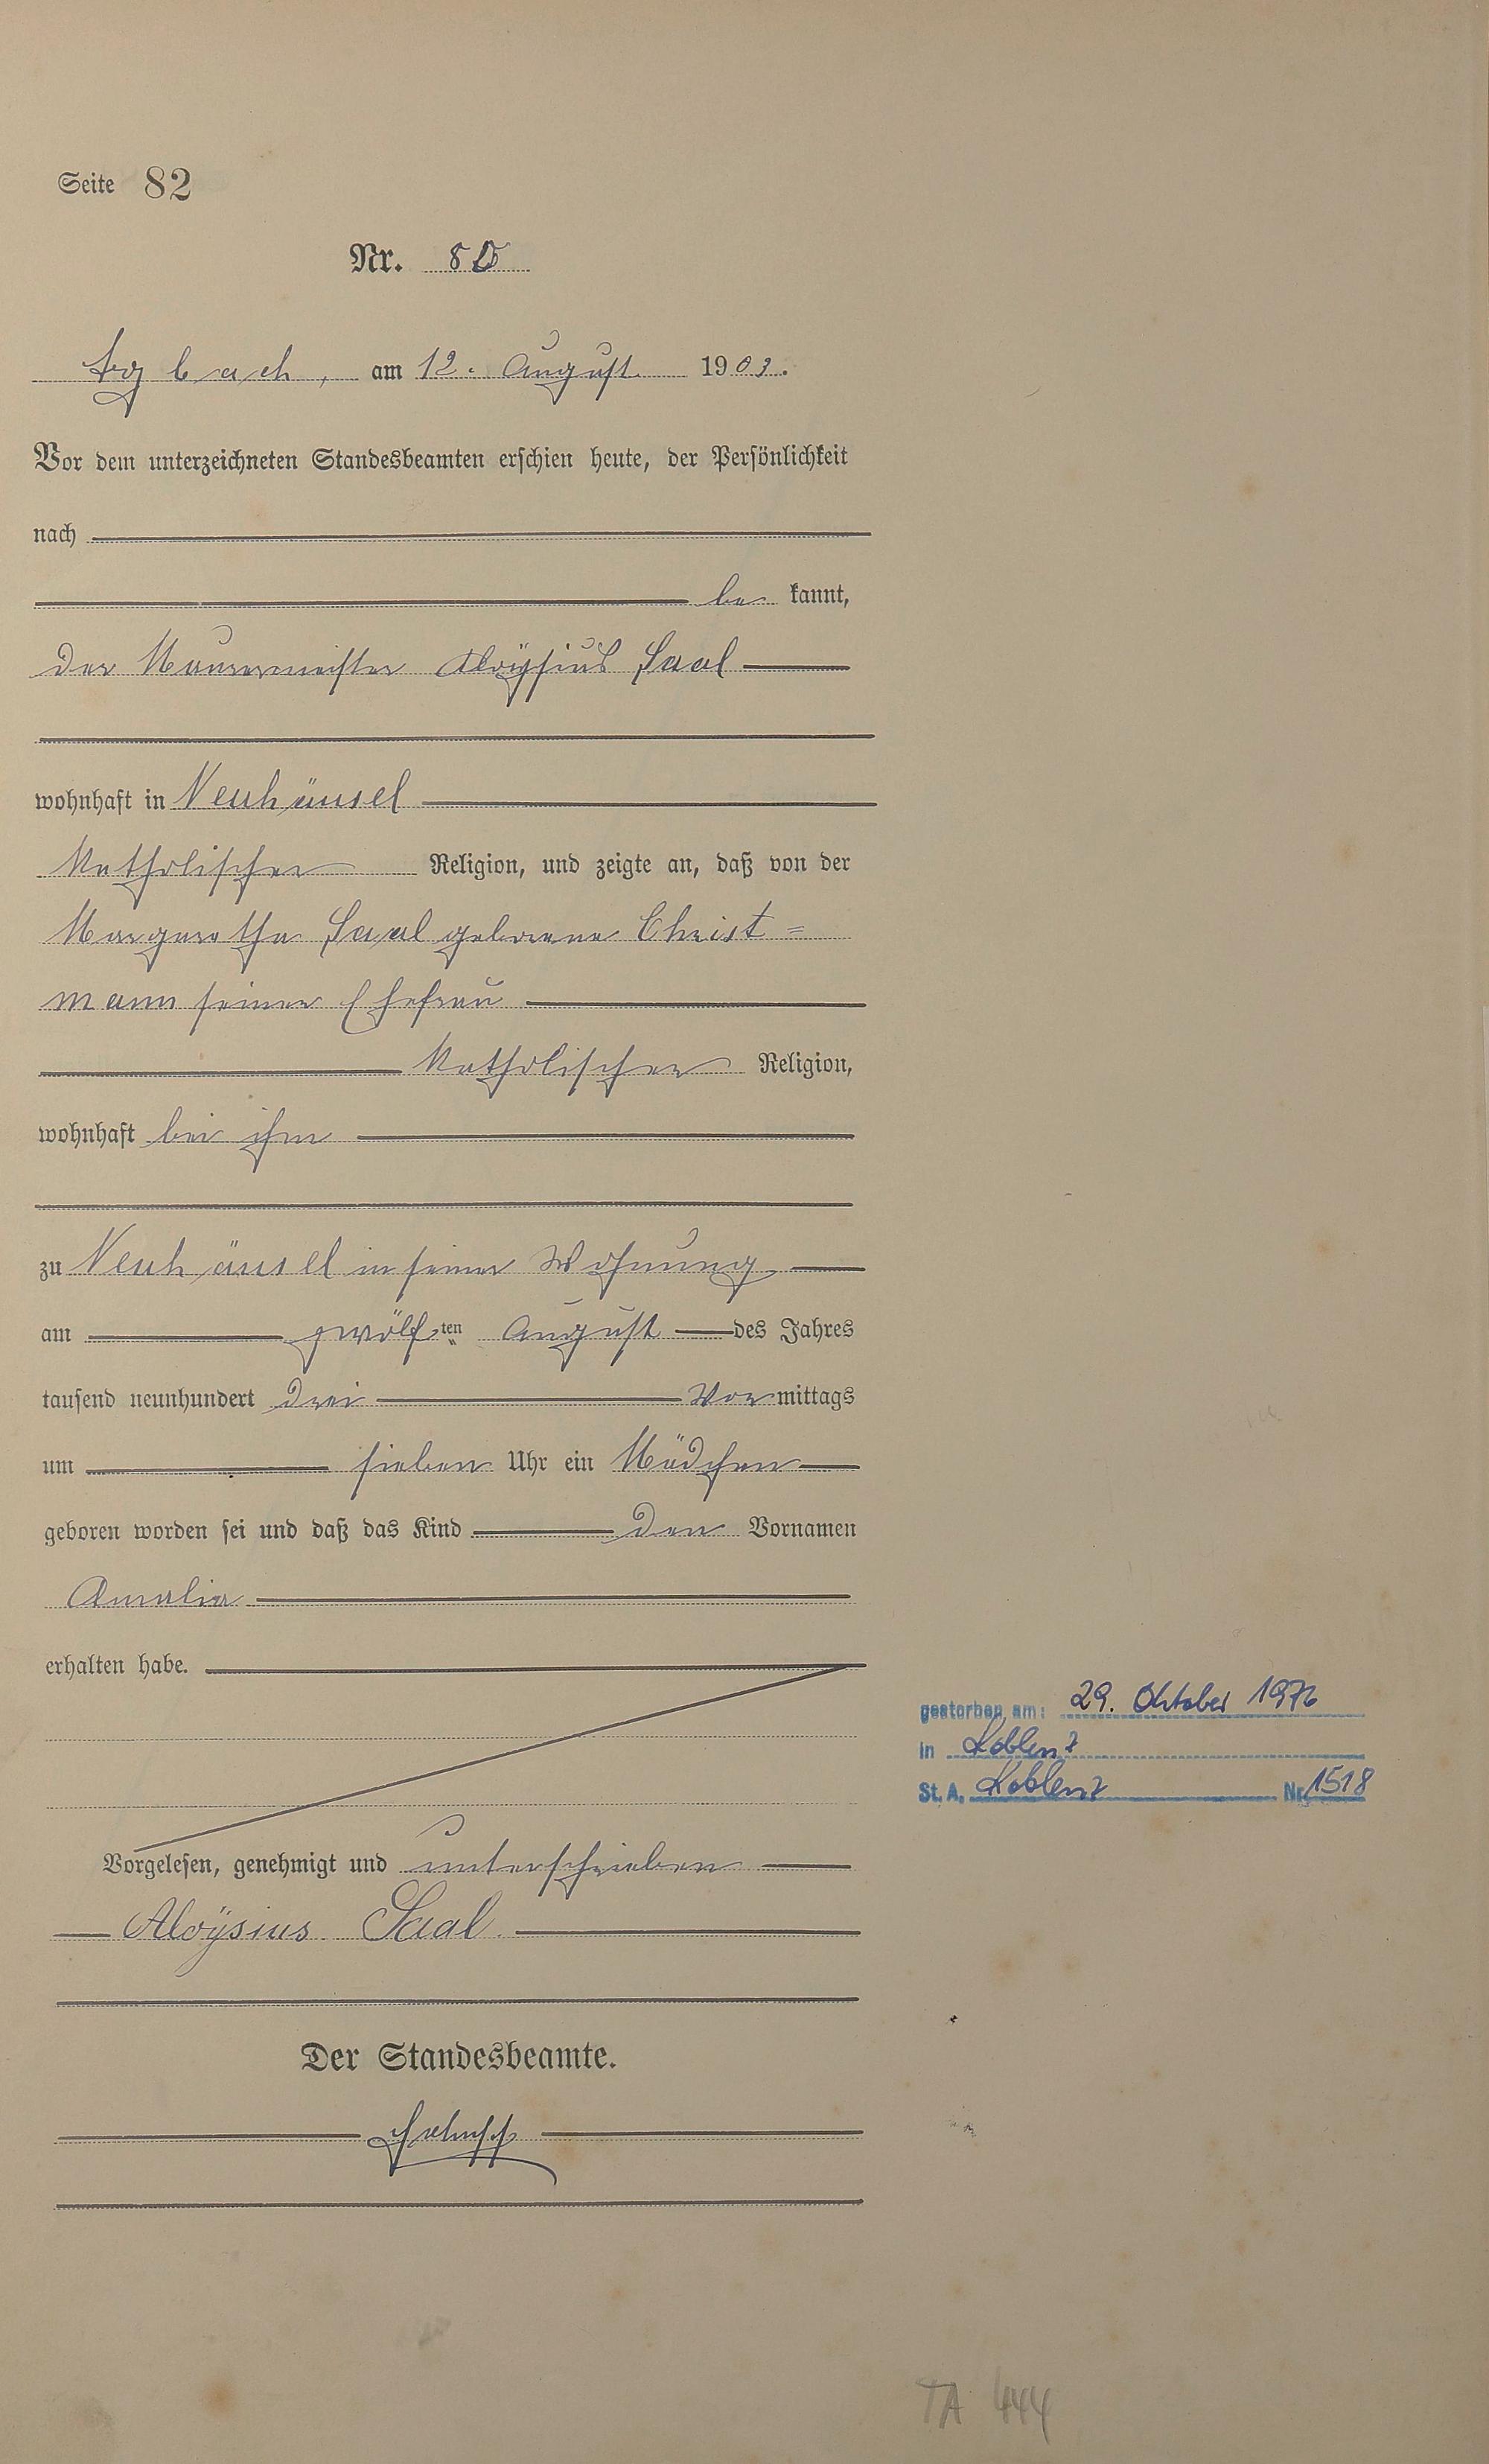 Seite 82
Nr. 80
Arzbach, am 12. August 1903.
Vor dem unterzeichneten Standesbeamten erschien heute, der Persönlichkeit
nach
be kannt,
der Maurermeister Aloÿsius Saal
wohnhaft in Neuhäusel
katholischer Religion, und zeigte an, daß von der
Margaretha Saal geborene Christ=
mann seiner Ehefrau
katholischer Religion,
wohnhaft bei ihm
zu Neuhäusel in seiner Wohnung
am zwölf ten August des Jahres
tausend neunhundert drei Vor mittags
um sieben Uhr ein Mädchen
geboren worden sei und daß das Kind den Vornamen
Amalia
erhalten habe.
gestorben am: 29. Oktober 1976
in Koblenz
St. A. Koblenz Nr. 1518
Vorgelesen, genehmigt und unterschrieben
Aloÿsius Saal
Der Standesbeamte.
TA 444